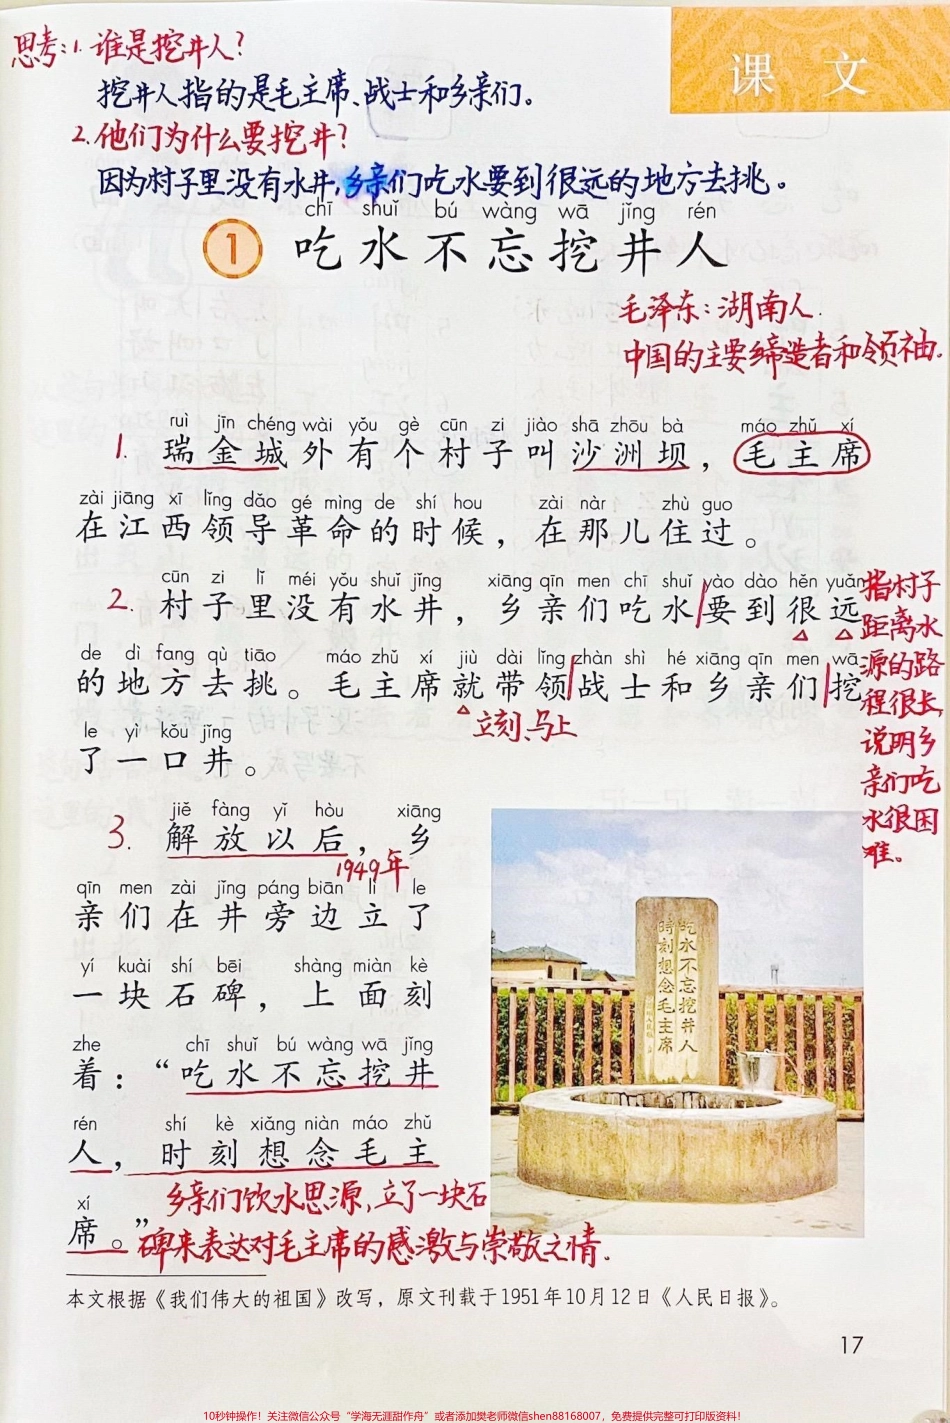 思考:1.谁是挖井人?
挖井人指的是毛主席、战士和乡亲们。
2.他们为什么要挖井?
因为村子里没有水井,乡亲们吃水要到很远的地方去挑。
课 文
chī shuǐ bú wàng wā jǐng rén
1 吃水不忘挖井人
毛泽东:湖南人.
中国的主要缔造者和领袖.
ruì jīn chéng wài yǒu gè cūn zi jiào shā zhōu bà máo zhǔ xí
1. 瑞金城外有个村子叫沙洲坝,毛主席
zài jiāng xī lǐng dǎo gé mìng de shí hou zài nàr zhù guo
在江西领导革命的时候,在那儿住过。
cūn zi lǐ méi yǒu shuǐ jǐng xiāng qīn men chī shuǐ yào dào hěn yuǎn
2. 村子里没有水井,乡亲们吃水要到很远
de dì fang qù tiāo máo zhǔ xí jiù dài lǐng zhàn shì hé xiāng qīn men wā
的地方去挑。毛主席就带领战士和乡亲们挖
立刻、马上
le yì kǒu jǐng
了一口井。
指村子
距离水
源的路
程很长,
说明乡
亲们吃
水很困
难。
jiě fàng yǐ hòu xiāng
3. 解放以后,乡
1949年
qīn men zài jǐng páng biān lì le
亲们在井旁边立了
yí kuài shí bēi shàng miàn kè
一块石碑,上面刻
zhe chī shuǐ bú wàng wā jǐng
着:“吃水不忘挖井
rén shí kè xiǎng niàn máo zhǔ
人,时刻想念毛主
xí
席。”
乡亲们饮水思源,立了一块石
碑来表达对毛主席的感激与崇敬之情.
吃水不忘挖井人
時刻想念毛主席
本文根据《我们伟大的祖国》改写,原文刊载于1951年10月12日《人民日报》。
17
10秒钟操作!关注微信公众号“学海无涯甜作舟”或者添加樊老师微信shen88168007,免费提供完整可打印版资料!